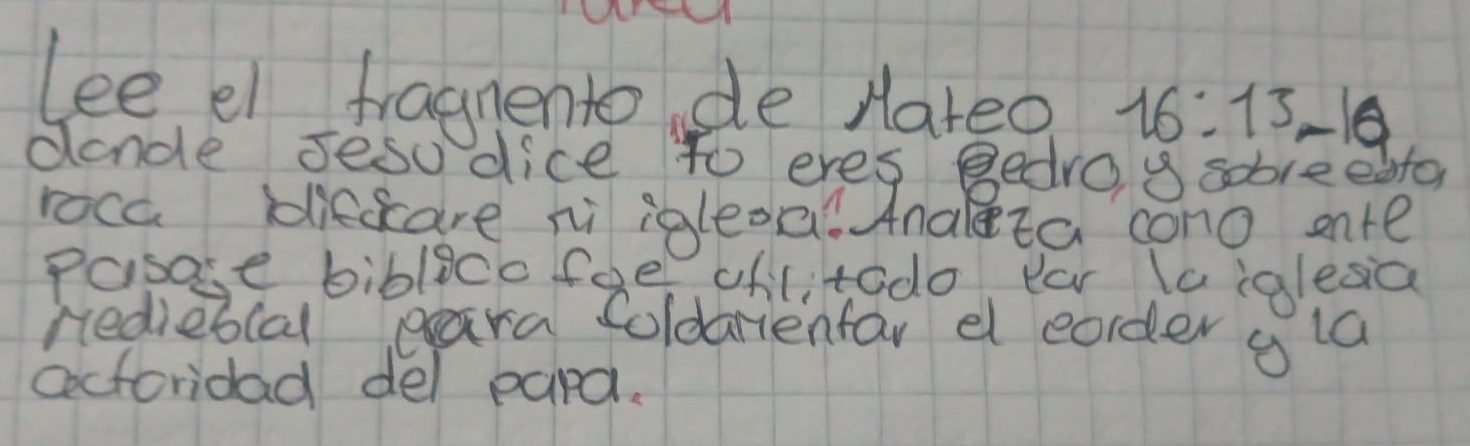 Lee el fragmento de Mateo 16:13-18
donde Jesu dice "to eres Pedro, y sobre esta
roca dificare mi iglesia". Analiza como ente
pasaje biblico fue utilitado par la iglesia
medieblal para foldamentar el porder y la
actoridad del papa.